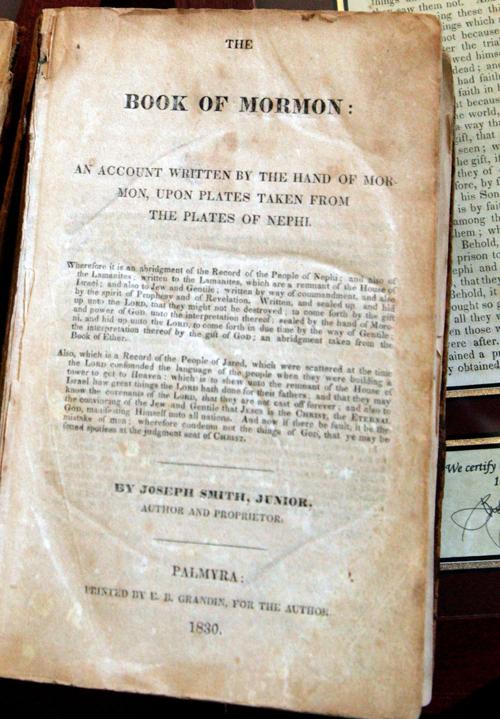 THE
BOOK OF MORMON:
AN ACCOUNT WRITTEN BY THE HAND OF MOR-
MON, UPON PLATES TAKEN FROM
THE PLATES OF NEPHI.
Wherefore it is an abridgment of the Record of the People of Nephi; and also of
the Lamanites; written to the Lamanites, which are a remnant of the House of
Israel; and also to Jew and Gentile; written by way of commandment, and also
by the spirit of Prophesy and of Revelation. Written, and sealed up, and hid
up unto the LORD, that they might not be destroyed; to come forth by the gift
and power of GOD, unto the interpretation thereof; sealed by the hand of Moro-
ni, and hid up unto the LORD, to come forth in due time by the way of Gentile;
the interpretation thereof by the gift of GOD; an abridgment taken from the
Book of Ether.
Also, which is a Record of the People of Jared, which were scattered at the time
the LORD confounded the language of the people when they were building a
tower to get to Heaven: which is to shew unto the remnant of the House of
Israel how great things the LORD hath done for their fathers; and that they may
know the covenants of the LORD, that they are not cast off forever; and also to
the convincing of the Jew and Gentile that JESUS is the CHRIST, the ETERNAL
GOD, manifesting Himself unto all nations. And now if there be fault, it be the
mistake of men; wherefore condemn not the things of GOD, that ye may be
found spotless at the judgment seat of CHRIST.
BY JOSEPH SMITH, JUNIOR,
AUTHOR AND PROPRIETOR.
PALMYRA:
PRINTED BY E. B. GRANDIN, FOR THE AUTHOR.
1830.
We certify